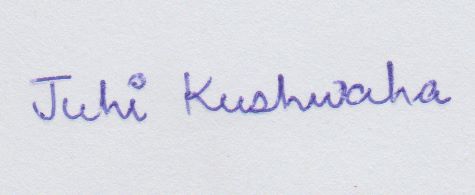 Juhi Kushwaha